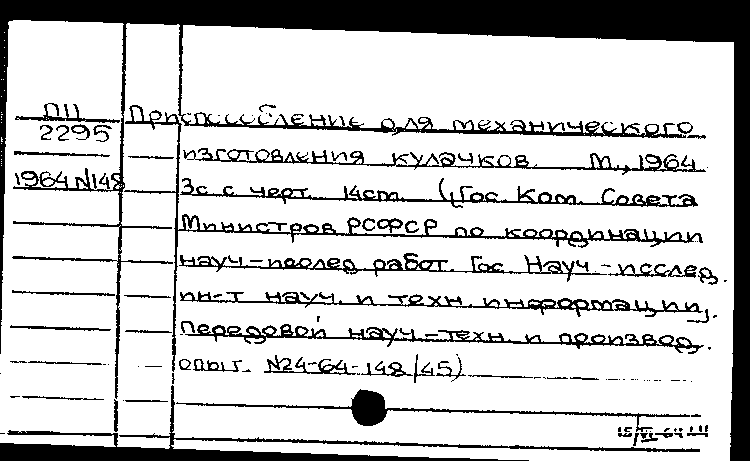 ПП
2295
1964 N148
Приспособление для механического
изготовления кулачков. М., 1964
3с с черт. 14cm. (Гос. Ком. Совета
Министров РСФСР по координации
науч-исслед работ. Гос. Науч-исслед.
ин-т науч. и техн. информации,
Передовой науч-техн. и производ.
опыт. N24-64-148/45)
15/VI-64